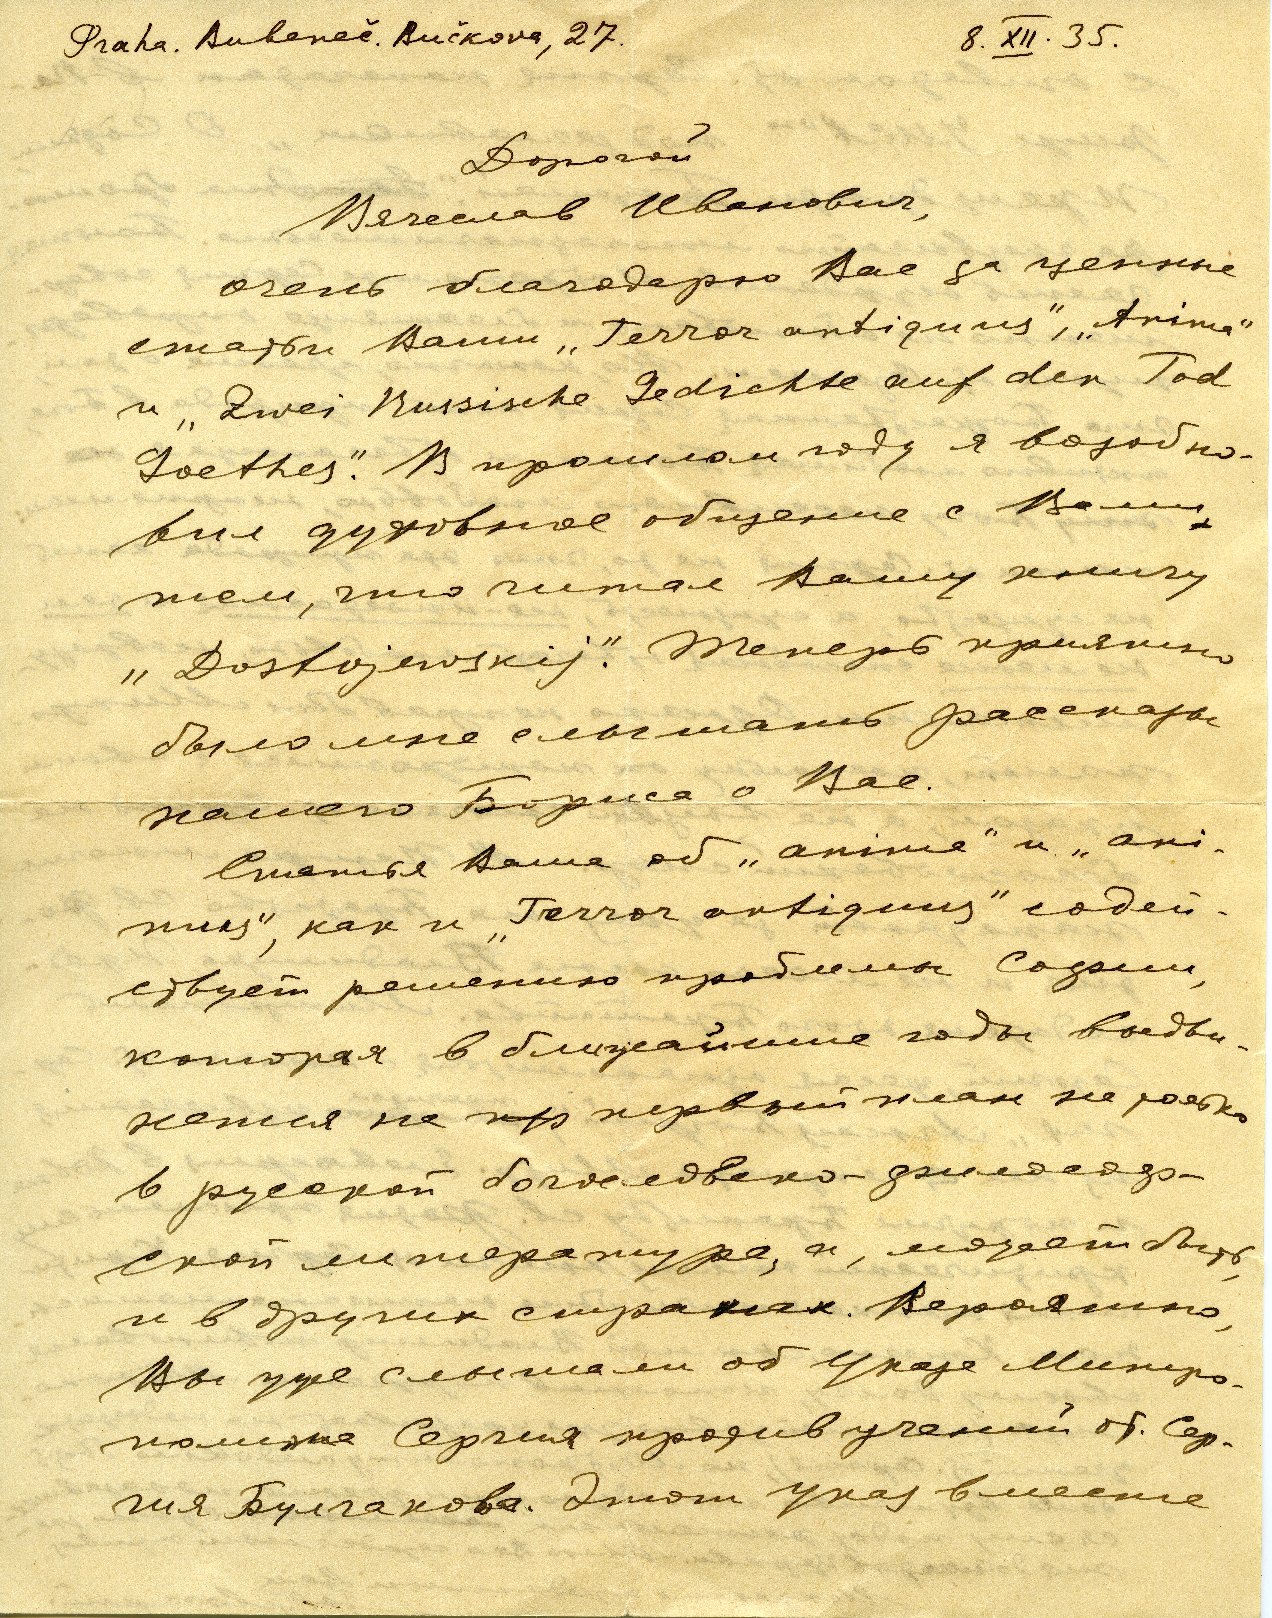 Praha. Bubeneč. Bučkova, 27.
8. XII. 35.
Дорогой
Вячеслав Иванович,
очень благодарю Вас за ценные
статьи Ваши „Terror antiquus”, „Anima”
и „Zwei Russische Gedichte auf den Tod
Goethes”. В прошлом году я возобно-
вил духовное общение с Вами
тем, что читал Вашу книгу
„Dostojewskij”. Теперь приятно
было мне слышать рассказы
нашего Бориса о Вас.
Статья Ваша об „anima” и „ani-
mus”, как и „Terror antiquus” содей-
ствует решению проблемы Софии,
которая в ближайшие годы выдви-
нется на пр первый план не только
в русской богословско-философ-
ской литературе, а, может быть,
и в других странах. Вероятно,
Вы уже слышали об Указе Митро-
полита Сергия против учений от. Сер-
гия Булгакова. Этот Указ вместе